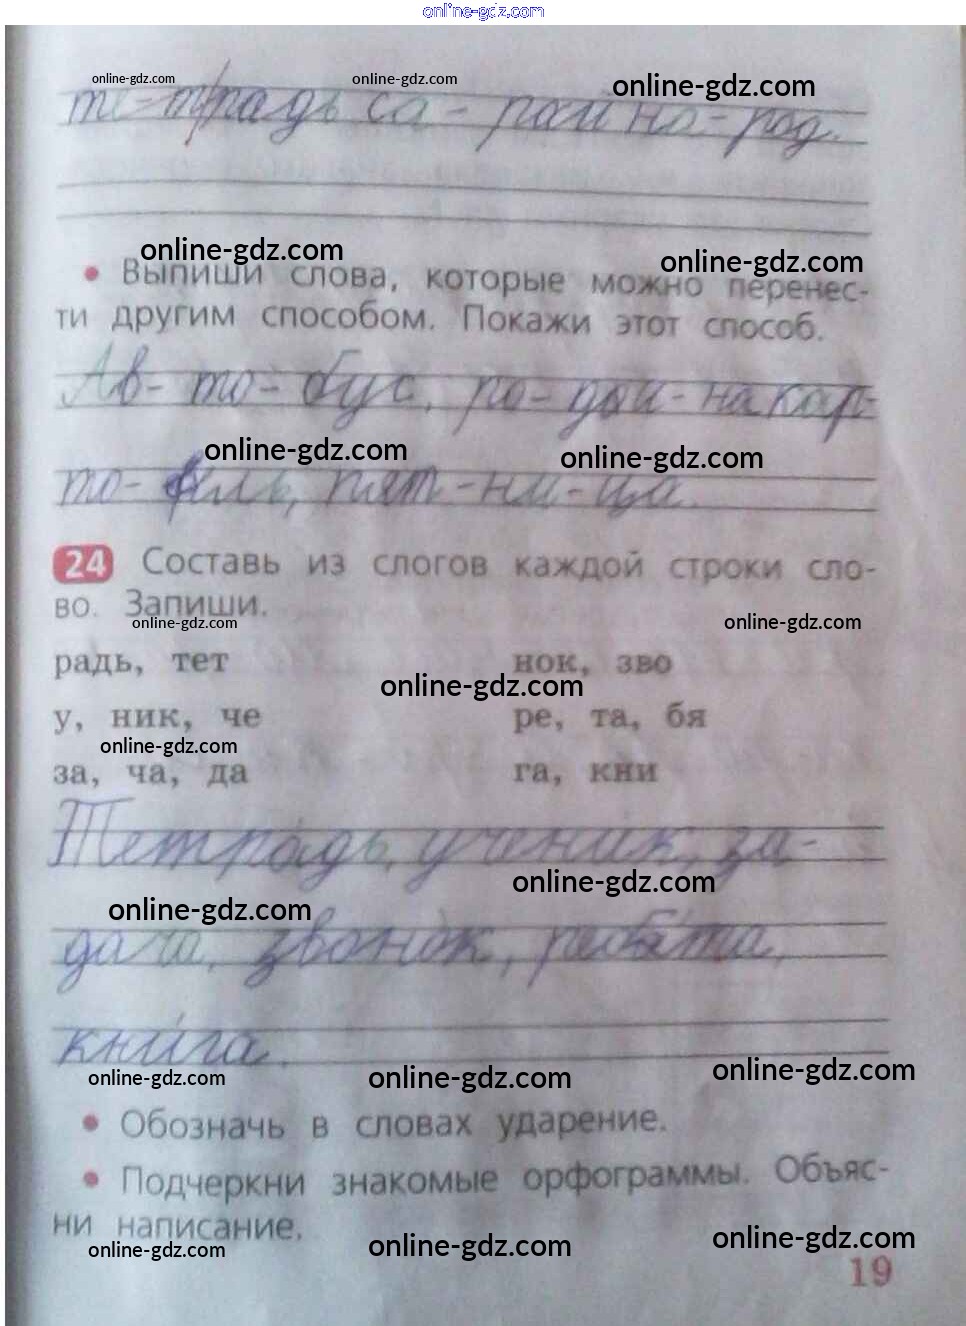 online-gdz.com
online-gdz.com online-gdz.com online-gdz.com
те-традь са-рай на-род.
online-gdz.com online-gdz.com
• Выпиши слова, которые можно перенес-
ти другим способом. Покажи этот способ.
Ав-то-бус, ро-дай-на кар-
online-gdz.com online-gdz.com
то-фель, пят-ни-ца.
24 Составь из слогов каждой строки сло-
во. Запиши.
online-gdz.com online-gdz.com
радь, тет нок, зво
online-gdz.com
у, ник, че ре, та, бя
online-gdz.com
за, ча, да га, кни
Тетрадь, ученик, за-
online-gdz.com online-gdz.com
дача, звонок, ребята,
книга.
online-gdz.com online-gdz.com online-gdz.com
• Обозначь в словах ударение.
• Подчеркни знакомые орфограммы. Объяс-
ни написание.
online-gdz.com online-gdz.com online-gdz.com
19